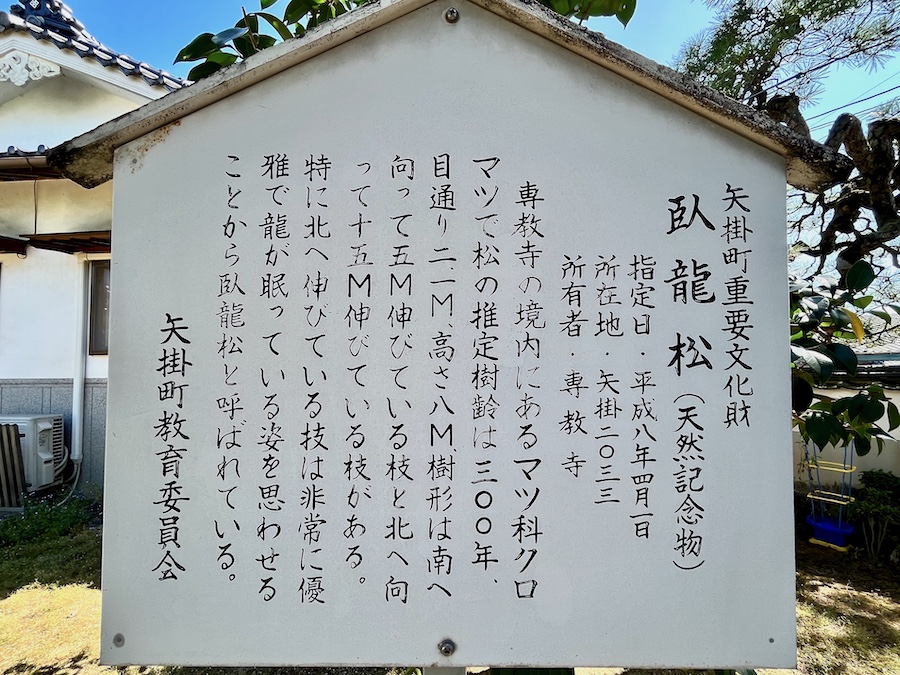 矢掛町重要文化財
臥龍松(天然記念物)
指定日・平成八年四月一日
所在地・矢掛二〇三三
所有者・専教寺
専教寺の境内にあるマツ科クロ
マツで松の推定樹齢は三〇〇年、
目通り二、一M、高さ八M、樹形は南へ
向って五M伸びている枝と北へ向
って十五M伸びている枝がある。
特に北へ伸びている技は非常に優
雅で龍が眠っている姿を思わせる
ことから臥龍松と呼ばれている。
矢掛町教育委員会